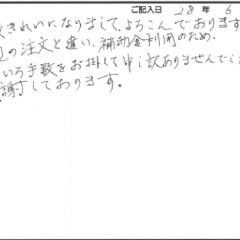 ご記入日 28 年 6
きれいになりまして、よろこんでおります
の注文と違い、補助金利用のため、
いろ手数をお掛して申し訳ありませんでし
謝しております。